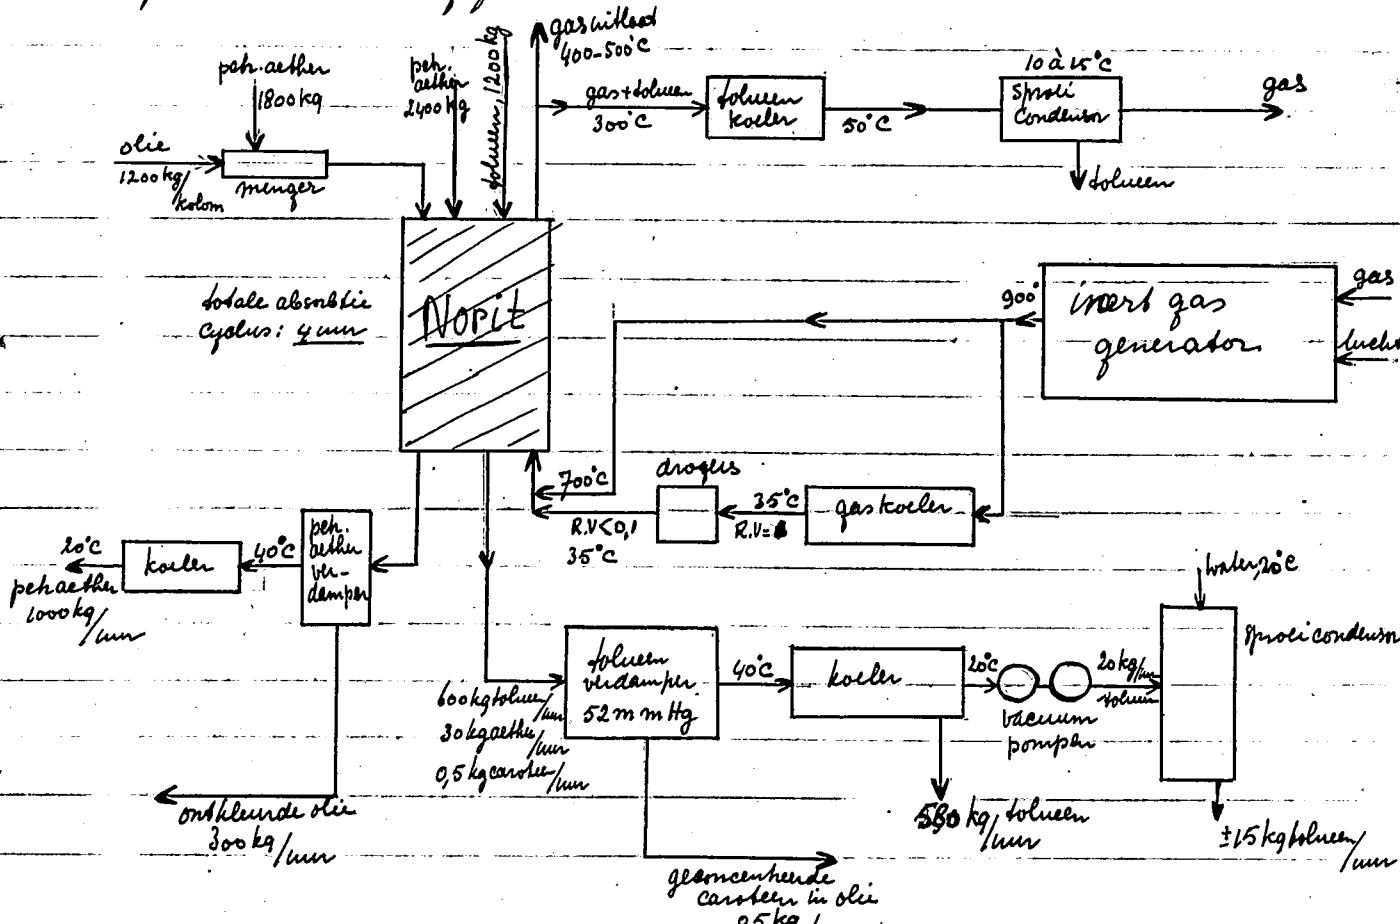 gasuitlaat
400-500°C
petr. aether
1800 kg
petr.
aether
2400 kg
tolueen, 1200 kg
olie
1200 kg/
kolom
menger
gas + tolueen
300°C
tolueen
koeler
50°C
10 à 15°C
Sproei
Condensor
gas
tolueen
totale absorbtie
cyclus: 4 uur
Norit
900°
inert gas
generator
gas
lucht
700°C
drogers
R.V < 0,1
35°C
35°C
R.V =
gaskoeler
petr.
aether
ver-
damper
40°C
koeler
20°C
petr aether
1000 kg
/uur
ontkleurde olie
300 kg
/uur
600 kg tolueen/uur
30 kg aether/uur
0,5 kg caroteen/uur
tolueen
verdamper
52 mm Hg
40°C
koeler
20°C
vacuum
pompen
20 kg/uur
tolueen
water, 20°C
Sproei condensor
580 kg/tolueen
/uur
±15 kg tolueen/
uur
geconcentreerde
caroteen in olie
0,5 kg/